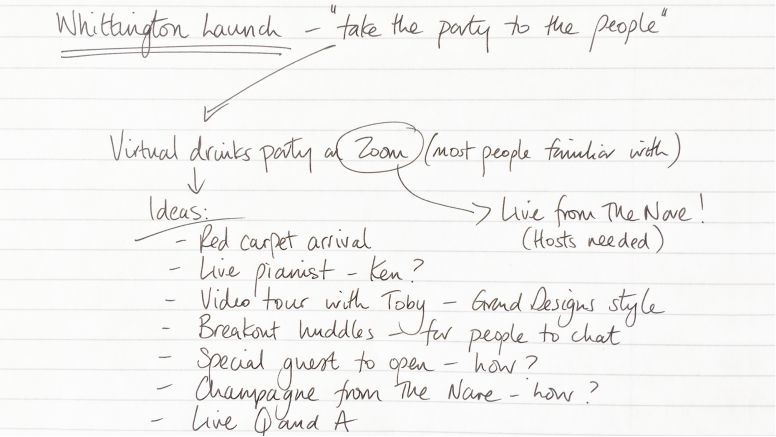 Whittington Launch – "take the party to the people"
Virtual drinks party on Zoom (most people familiar with)
Ideas:
→ Live from The Nare!
(Hosts needed)
– Red carpet arrival
– Live pianist – Ken?
– Video tour with Toby – Grand Designs style
– Breakout huddles – for people to chat
– Special guest to open – how?
– Champagne from The Nare – how?
– Live Q and A